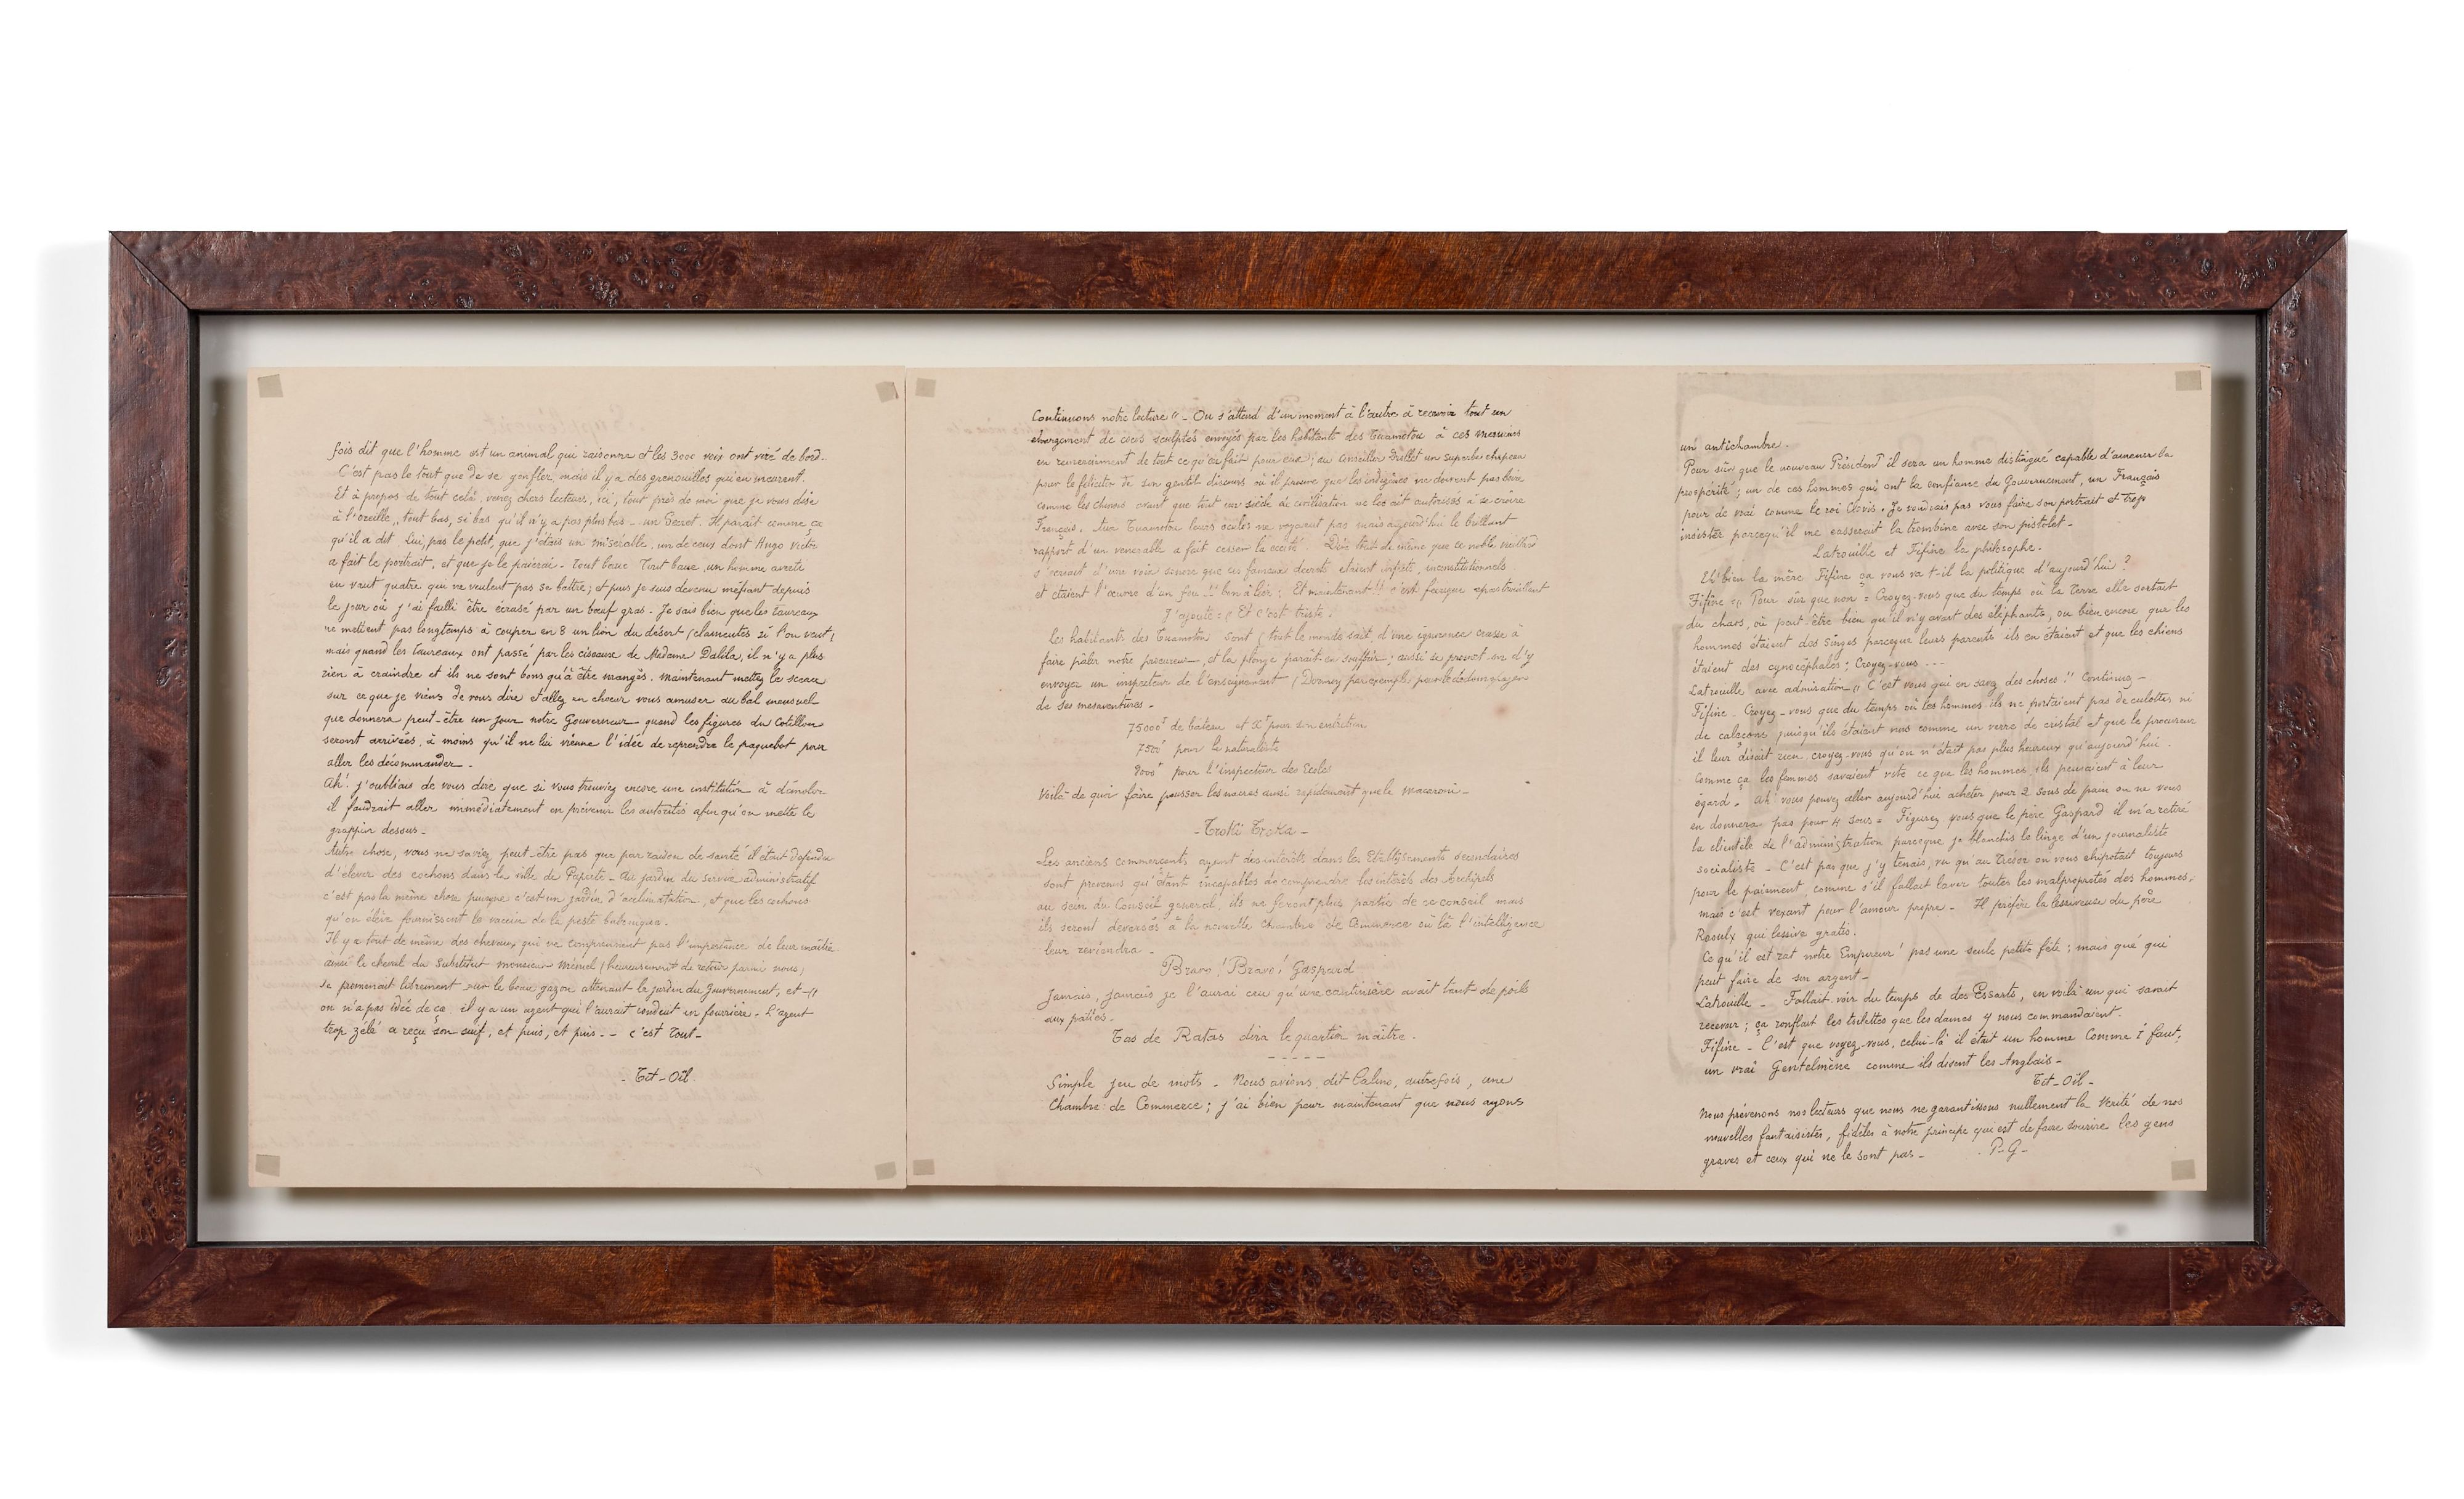 fois dit que l'homme est un animal qui raisonne et les 3000 voix ont viré de bord.
C'est pas le tout que de se gonfler, mais il y a des grenouilles qui en meurent.
Et à propos de tout celà, venez chers lecteurs, ici, tout près de moi que je vous dise
à l'oreille, tout bas, si bas qu'il n'y a pas plus bas - un Secret. Il paraît comme ça
qu'il a dit Lui, pas le petit, que j'étais un misérable, un de ceux dont Hugo Victor
a fait le portrait, et que je le paierai - Tout beau Tout beau, un homme averti
en vaut quatre qui ne veulent pas se battre; et puis je suis devenu méfiant depuis
le jour où j'ai failli être écrasé par un bœuf gras. Je sais bien que les taureaux
ne mettent pas longtemps à couper en 8 un lion du désert (clémentes si l'on veut)
mais quand les taureaux ont passé par les ciseaux de Madame Dalila, il n'y a plus
rien à craindre et ils ne sont bons qu'à être mangés. Maintenant mettez le sceau
sur ce que je viens de vous dire et allez en chœur vous amuser au bal mensuel
que donnera peut-être un jour notre Gouverneur quand les figures du Cotillon
seront arrivées, à moins qu'il ne lui vienne l'idée de reprendre le paquebot pour
aller les décommander.
Ah! j'oubliais de vous dire que si vous trouviez encore une institution à démolir
il faudrait aller immédiatement en prévenir les autorités afin qu'on mette le
grappin dessus -
Autre chose, vous ne saviez peut-être pas que par raison de santé il était défendu
d'élever des cochons dans la ville de Papeete - Au jardin du service administratif
c'est pas la même chose puisque c'est un jardin d'acclimatation, et que les cochons
qu'on élève fournissent le vaccin de la peste bubonique.
Il y a tout de même des chevaux qui ne comprennent pas l'importance de leur maître
ainsi le cheval du Substitut Monsieur (heureusement de retour parmi nous)
se promenait librement sur le beau gazon attenant le jardin du Gouvernement, et -
on n'a pas idée de ça, il y a un agent qui l'aurait conduit en fourrière. L'agent
trop zélé a reçu son suif, et puis, et puis - - c'est tout -
- Tit-Oil
Continuons notre lecture « - On s'attend d'un moment à l'autre à recevoir tout un
chargement de cocos sculptés envoyés par les habitants des Tuamotou à ces messieurs
en remerciement de tout ce qu'on fait pour eux; au Conseiller un superbe chapeau
pour le féliciter de son gentil discours où il prouve que les indigènes ne doivent pas boire
comme les chinois avant que tout un siècle de civilisation ne les ait autorisés à se croire
Français. Aux Tuamotou leurs ne voyaient pas mais aujourd'hui le brillant
rapport d'un vénérable a fait cesser la cécité. Dire tout de même que ce noble vieillard
s'écriait d'une voix sonore que ces fameux décrets étaient ineptes, inconstitutionnels
et étaient l'œuvre d'un fou!! bon à lier: Et maintenant!!
J'ajoute: « Et c'est triste.
Les habitants des Tuamotou sont (tout le monde sait) d'une ignorance crasse à
faire pâlir notre procureur, et la plonge paraît en souffrir; aussi se promet-on d'y
envoyer un inspecteur de l'enseignement (par exemple) pour le dédommager
de ses mésaventures -
75000f de bateau et Xf pour son entretien
7500f pour le naturaliste
9000f pour l'inspecteur des Ecoles
Voilà de quoi faire pousser les nacres aussi rapidement que le macaroni -
- Troki Troka -
Les anciens commerçants ayant des intérêts dans les Etablissements secondaires
sont prévenus qu'étant incapables de comprendre les intérêts des Archipels
au sein du Conseil général, ils ne feront plus partie de ce conseil mais
ils seront déversés à la nouvelle chambre de Commerce où là l'intelligence
leur reviendra -
Bravo! Bravo! Gaspard
Jamais, jamais je l'aurai cru qu'une cantinière avait tant de poils
aux pattes.
Tas de Ratas dira le quartier maître.
- - - - -
Simple jeu de mots - Nous avions, dit Calino, autrefois, une
Chambre de Commerce; j'ai bien peur maintenant que nous ayons
un antichambre.
Pour sûr que le nouveau Président il sera un homme distingué capable d'amener la
prospérité; un de ces hommes qui ont la confiance du Gouvernement, un Français
pour de vrai comme le roi Clovis. Je voudrais pas vous faire son portrait et trop
insister parcequ'il me casserait la trombine avec son pistolet -
Latrouille et Fifine la philosophe.
Eh bien la mère Fifine ça vous va t-il la politique d'aujourd'hui?
Fifine « Pour sûr que non = Croyez-vous que du temps où la Terre elle sortait
du chaos, où peut-être bien qu'il n'y avait des éléphants, ou bien encore que les
hommes étaient des singes parceque leurs parents ils en étaient et que les chiens
étaient des cynocéphales; Croyez-vous ---
Latrouille avec admiration « C'est vous qui en savez des choses!! Continuez -
Fifine - Croyez-vous que du temps où les hommes ils ne portaient pas de culottes ni
de calçons puisqu'ils étaient nus comme un verre de cristal et que le procureur
il leur disait rien, croyez-vous qu'on n'était pas plus heureux qu'aujourd'hui.
Comme ça les femmes savaient vite ce que les hommes ils pensaient à leur
égard. Ah! vous pouvez aller aujourd'hui acheter pour 2 sous de pain on ne vous
en donnera pas pour 4 sous = Figurez vous que le père Gaspard il m'a retiré
la clientèle de l'administration parceque je blanchis le linge d'un journaliste
socialiste - C'est pas que j'y tenais, vu qu'au Trésor on vous chipotait toujours
pour le paiement, comme s'il fallait laver toutes les malpropretés des hommes,
mais c'est vexant pour l'amour propre - Il préfère la lessiveuse du père
Raoulx qui lessive gratis.
Ce qu'il est rat notre Empereur! pas une seule petite fête; mais qué qui
peut faire de son argent -
Latrouille - Fallait voir du temps de des Essarts, en voilà un qui savait
recevoir; ça ronflait les toilettes que les dames y nous commandaient.
Fifine - C'est que voyez-vous, celui-là il était un homme Comme i' faut,
un vrai Gentelmène comme ils disent les Anglais -
Tit-Oil -
Nous prévenons nos lecteurs que nous ne garantissons nullement la Vérité de nos
nouvelles fantaisistes, fidèles à notre principe qui est de faire sourire les gens
graves et ceux qui ne le sont pas - P-G-